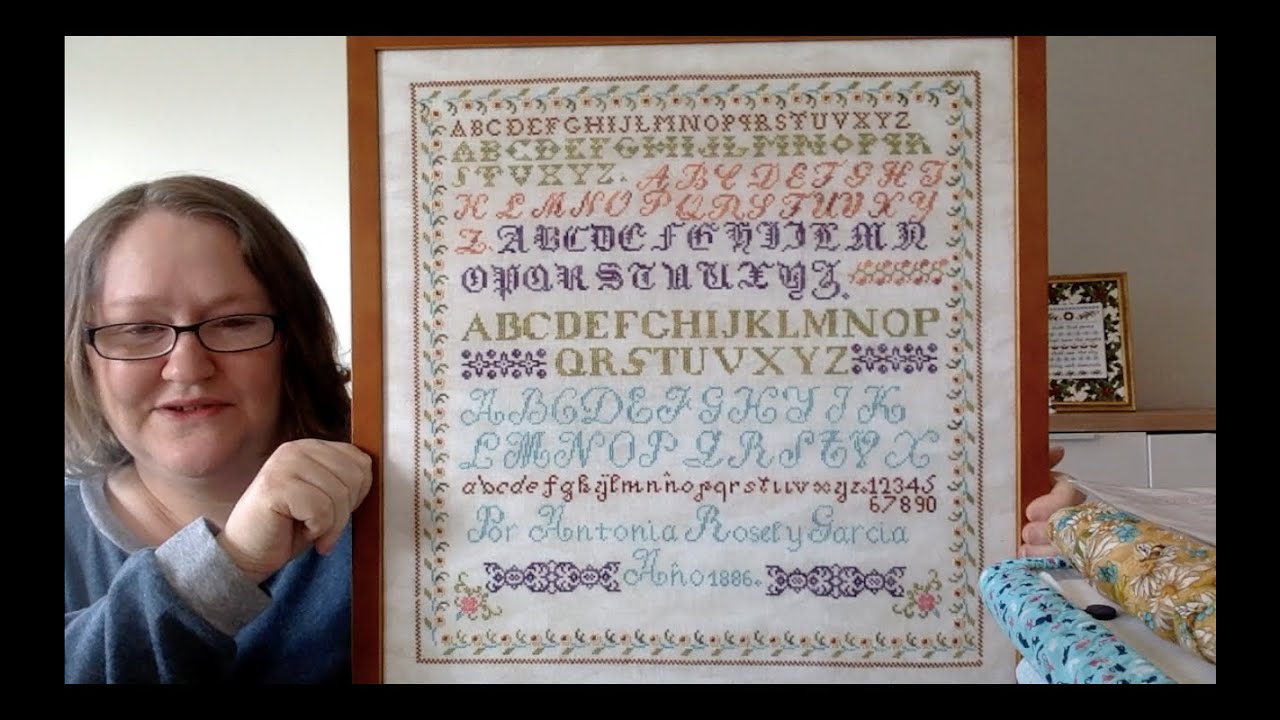 ABCDEFGHIJLMNOPQRSTUVXYZ
ABCDEFGHIJLMNOPQR
STUVXYZ. ABCDEFGHI
KLMNOPQRSTUVXY
Z. ABCDEFGHIJLMN
OPQRSTUVXYZ.
ABCDEFGHIJKLMNOP
QRSTUVXYZ
ABCDEFGHYJK
LMNOPQRSTVX
abcdefghijlmnñopqrstuvxyz. 12345
67890
Por Antonia Rosety Garcia
Año 1886.